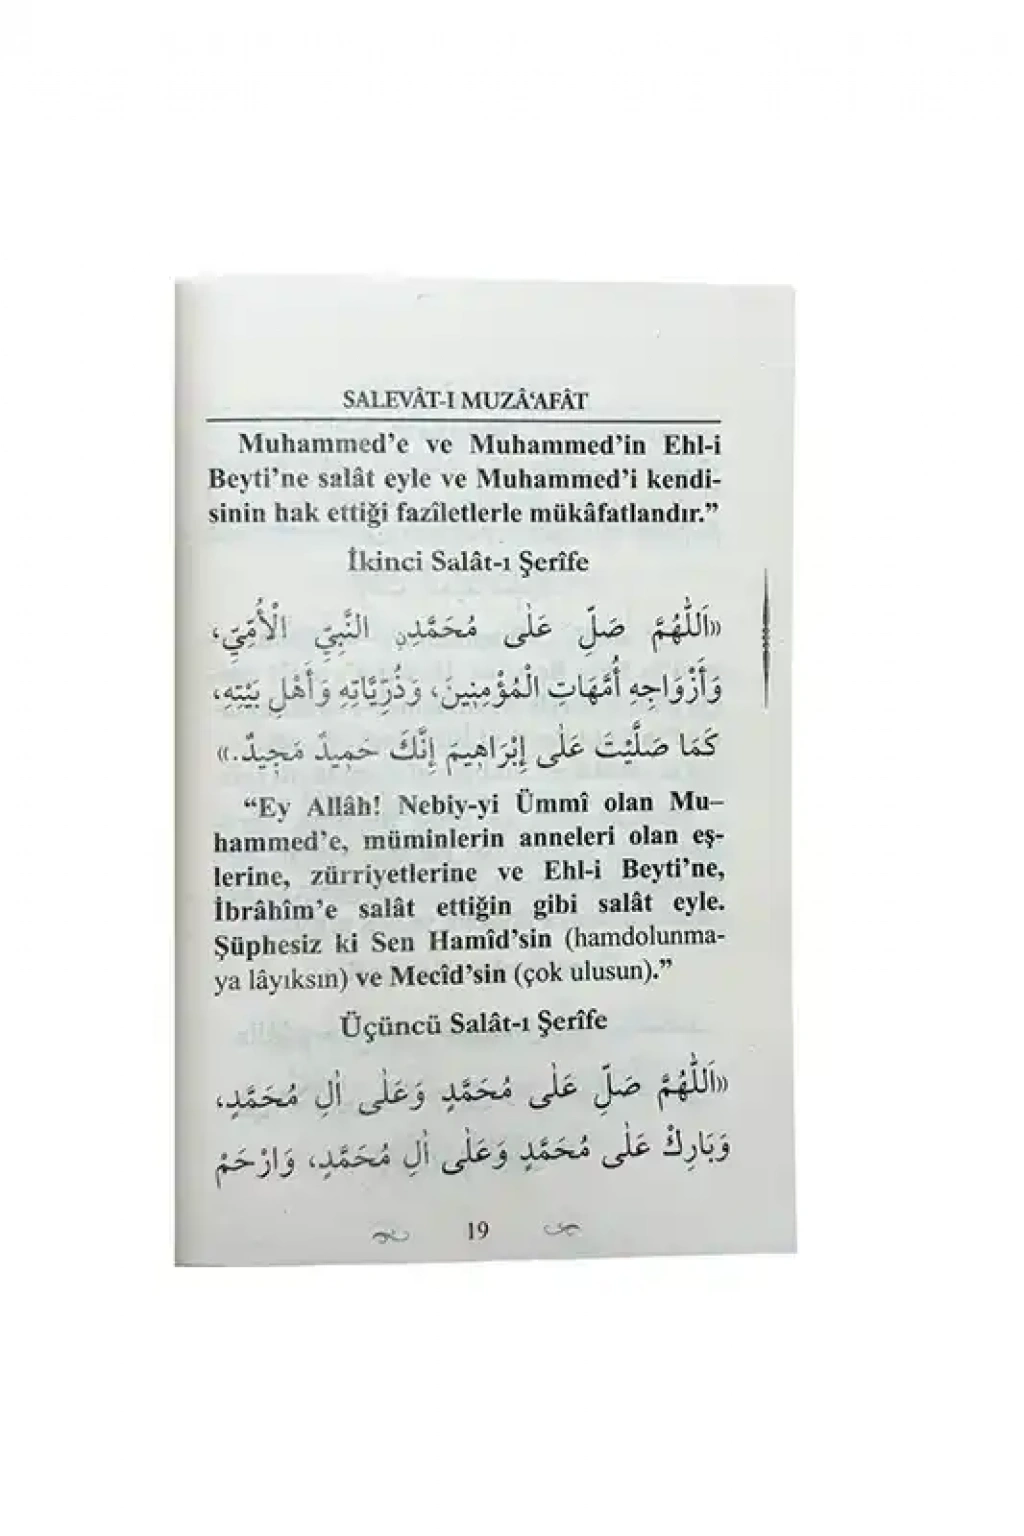 SALEVÂT-I MUZÂ‘AFÂT
Muhammed’e ve Muhammed’in Ehl-i
Beyti’ne salât eyle ve Muhammed’i kendi-
sinin hak ettiği fazîletlerle mükâfatlandır.”
İkinci Salât-ı Şerîfe
«اَللّٰهُمَّ صَلِّ عَلٰى مُحَمَّدٍنِ النَّبِيِّ الْاُمِّيِّ،
وَأَزْوَاجِهِ أُمَّهَاتِ الْمُؤْمِنِينَ، وَذُرِّيَّاتِهِ وَأَهْلِ بَيْتِهِ،
كَمَا صَلَّيْتَ عَلٰى إِبْرَاهِيمَ إِنَّكَ حَمِيدٌ مَجِيدٌ.»
“Ey Allâh! Nebiy-yi Ümmî olan Mu–
hammed’e, müminlerin anneleri olan eş-
lerine, zürriyetlerine ve Ehl-i Beyti’ne,
İbrâhîm’e salât ettiğin gibi salât eyle.
Şüphesiz ki Sen Hamîd’sin (hamdolunma-
ya lâyıksın) ve Mecîd’sin (çok ulusun).”
Üçüncü Salât-ı Şerîfe
«اَللّٰهُمَّ صَلِّ عَلٰى مُحَمَّدٍ وَعَلٰى اٰلِ مُحَمَّدٍ،
وَبَارِكْ عَلٰى مُحَمَّدٍ وَعَلٰى اٰلِ مُحَمَّدٍ، وَارْحَمْ
19